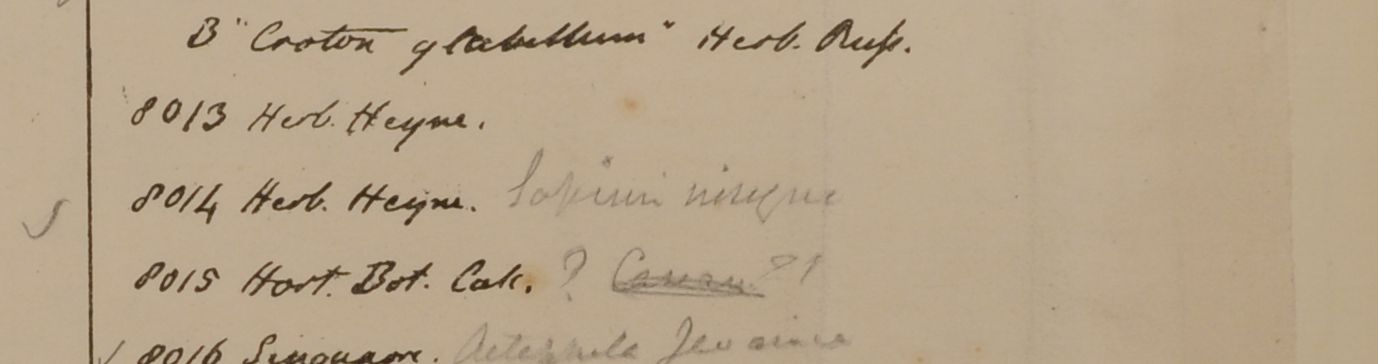 B "Croton glabellum" Herb. Russ.
8013 Herb. Heyne.
8014 Herb. Heyne. Sapium
8015 Hort. Bot. Calc. ? ?
8016 Singapore. Actephila Javanica